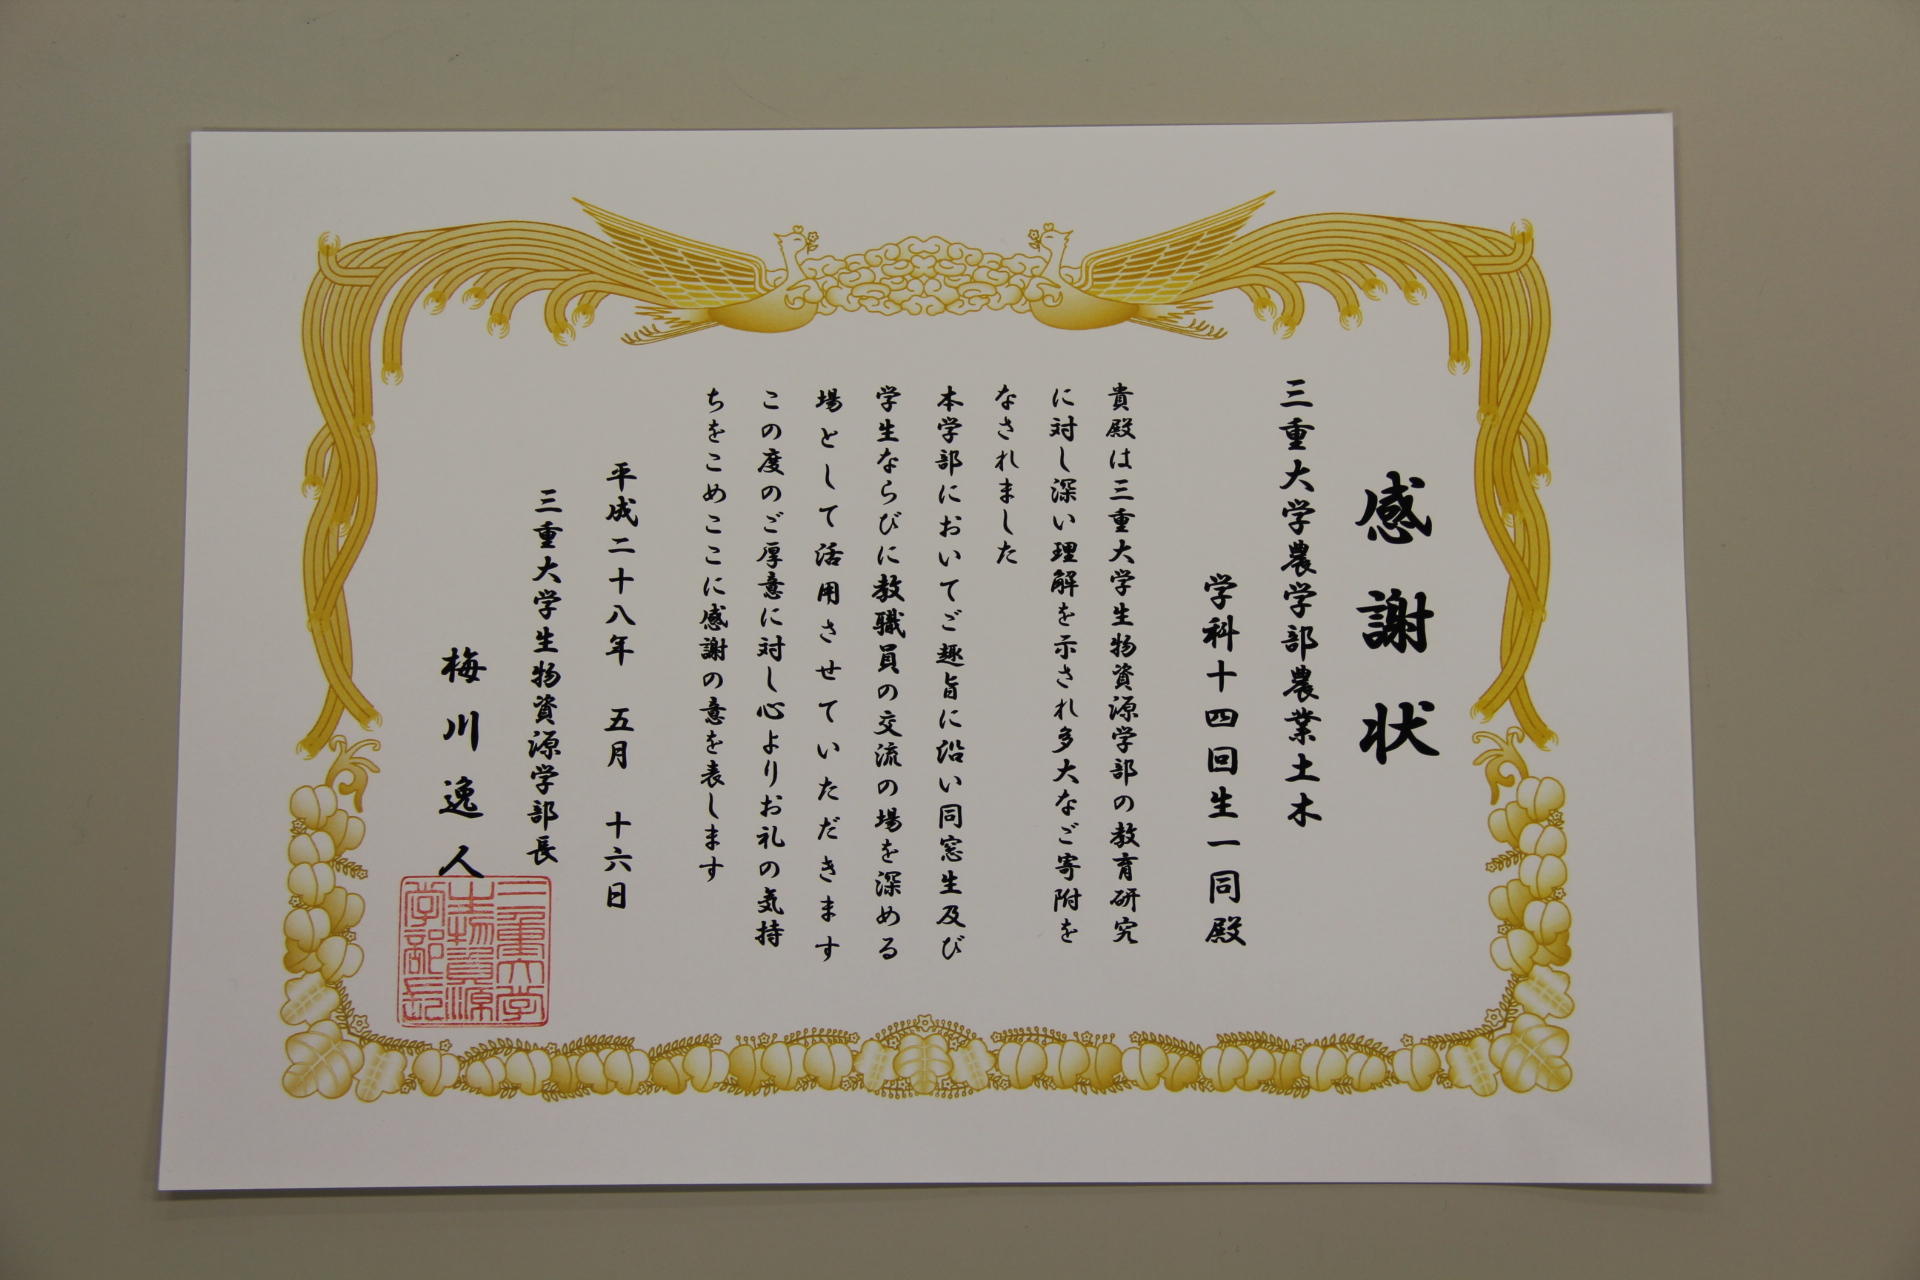 感謝状
三重大学農学部農業土木
学科十四回生一同殿
貴殿は三重大学生物資源学部の教育研究
に対し深い理解を示され多大なご寄附を
なされました
本学部においてご趣旨に沿い同窓生及び
学生ならびに教職員の交流の場を深める
場として活用させていただきます
この度のご厚意に対し心よりお礼の気持
ちをこめここに感謝の意を表します
平成二十八年 五月 十六日
三重大学生物資源学部長
梅川逸人
三重大学
生物資源
学部長